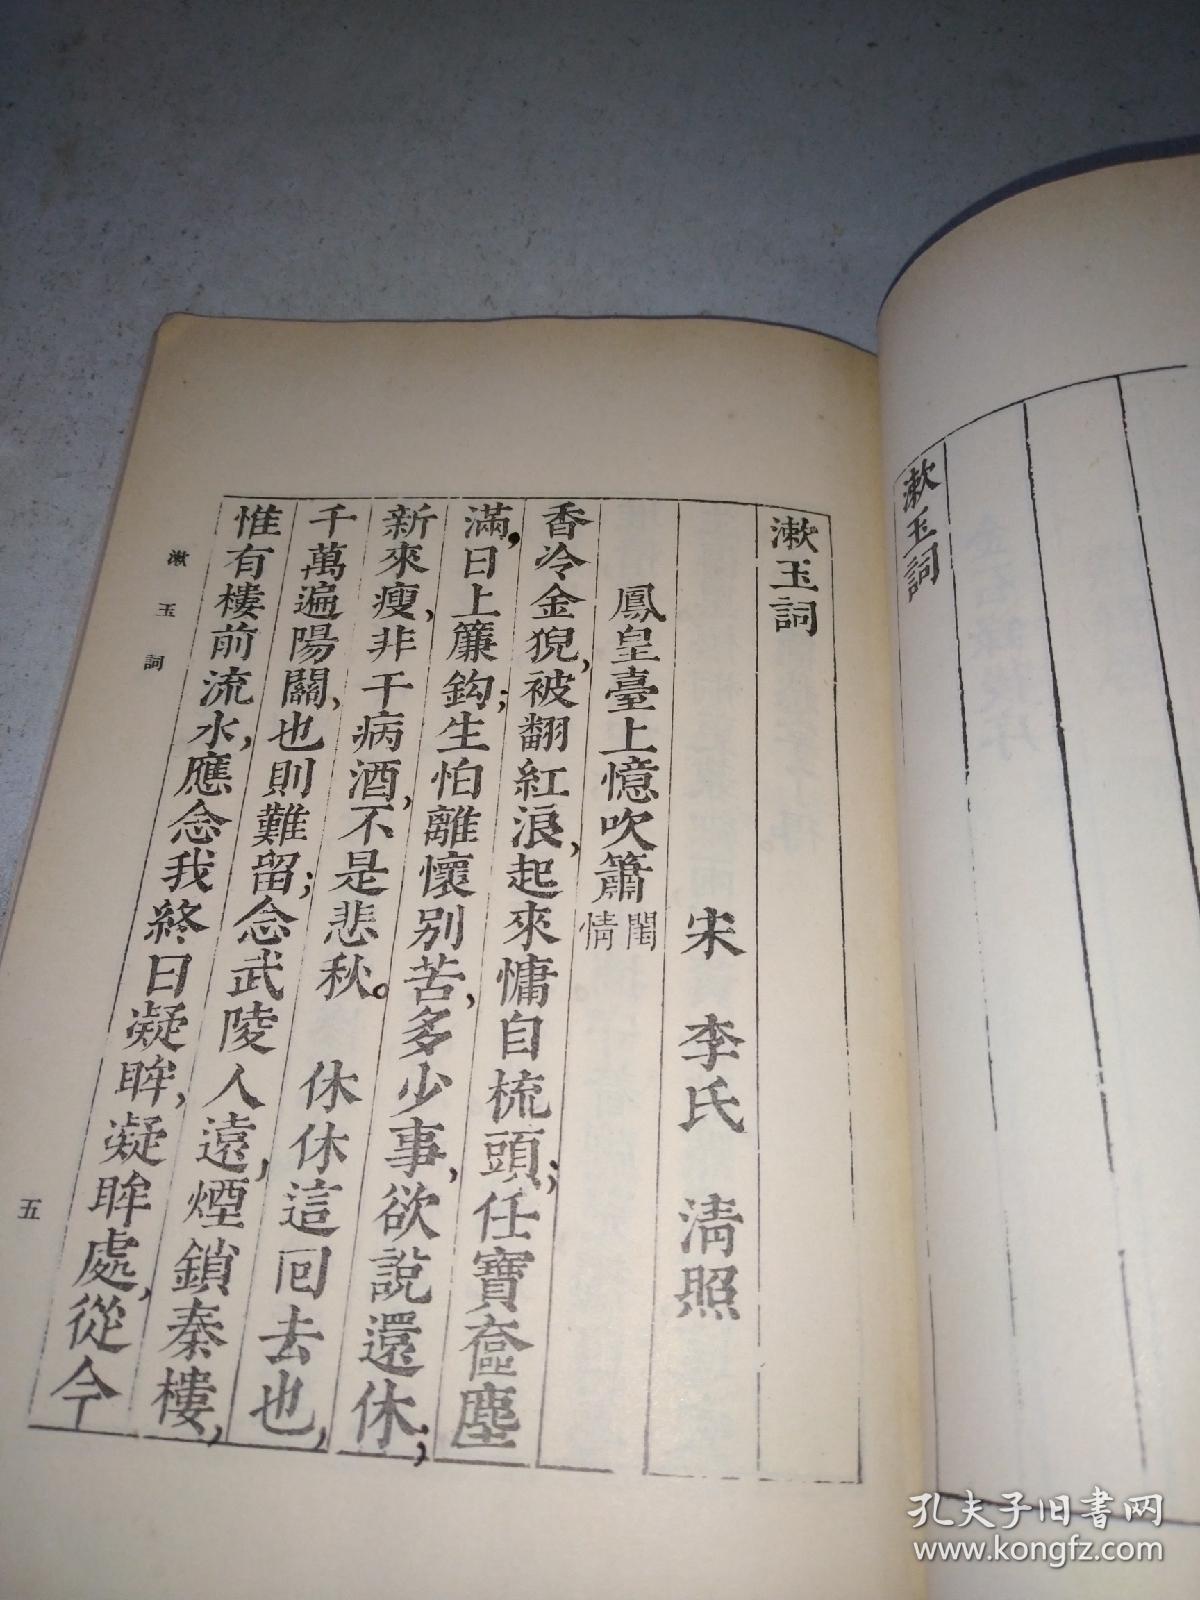 漱玉詞
漱玉詞
宋 李氏 清照
鳳皇臺上憶吹簫 閨情
香冷金猊，被翻紅浪，起來慵自梳頭；任寶奩塵
滿，日上簾鈎；生怕離懷別苦，多少事，欲說還休；
新來瘦，非干病酒，不是悲秋。 休休這回去也，
千萬遍陽關，也則難留；念武陵人遠，煙鎖秦樓，
惟有樓前流水，應念我終日凝眸，凝眸處，從今
漱玉詞
五
孔夫子旧书网
www.kongfz.com